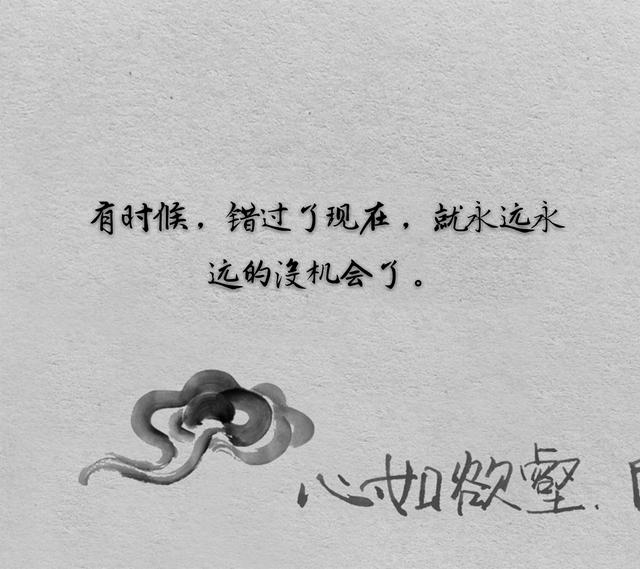 有时候，错过了现在，就永远永
远的没机会了。
心如欲壑.